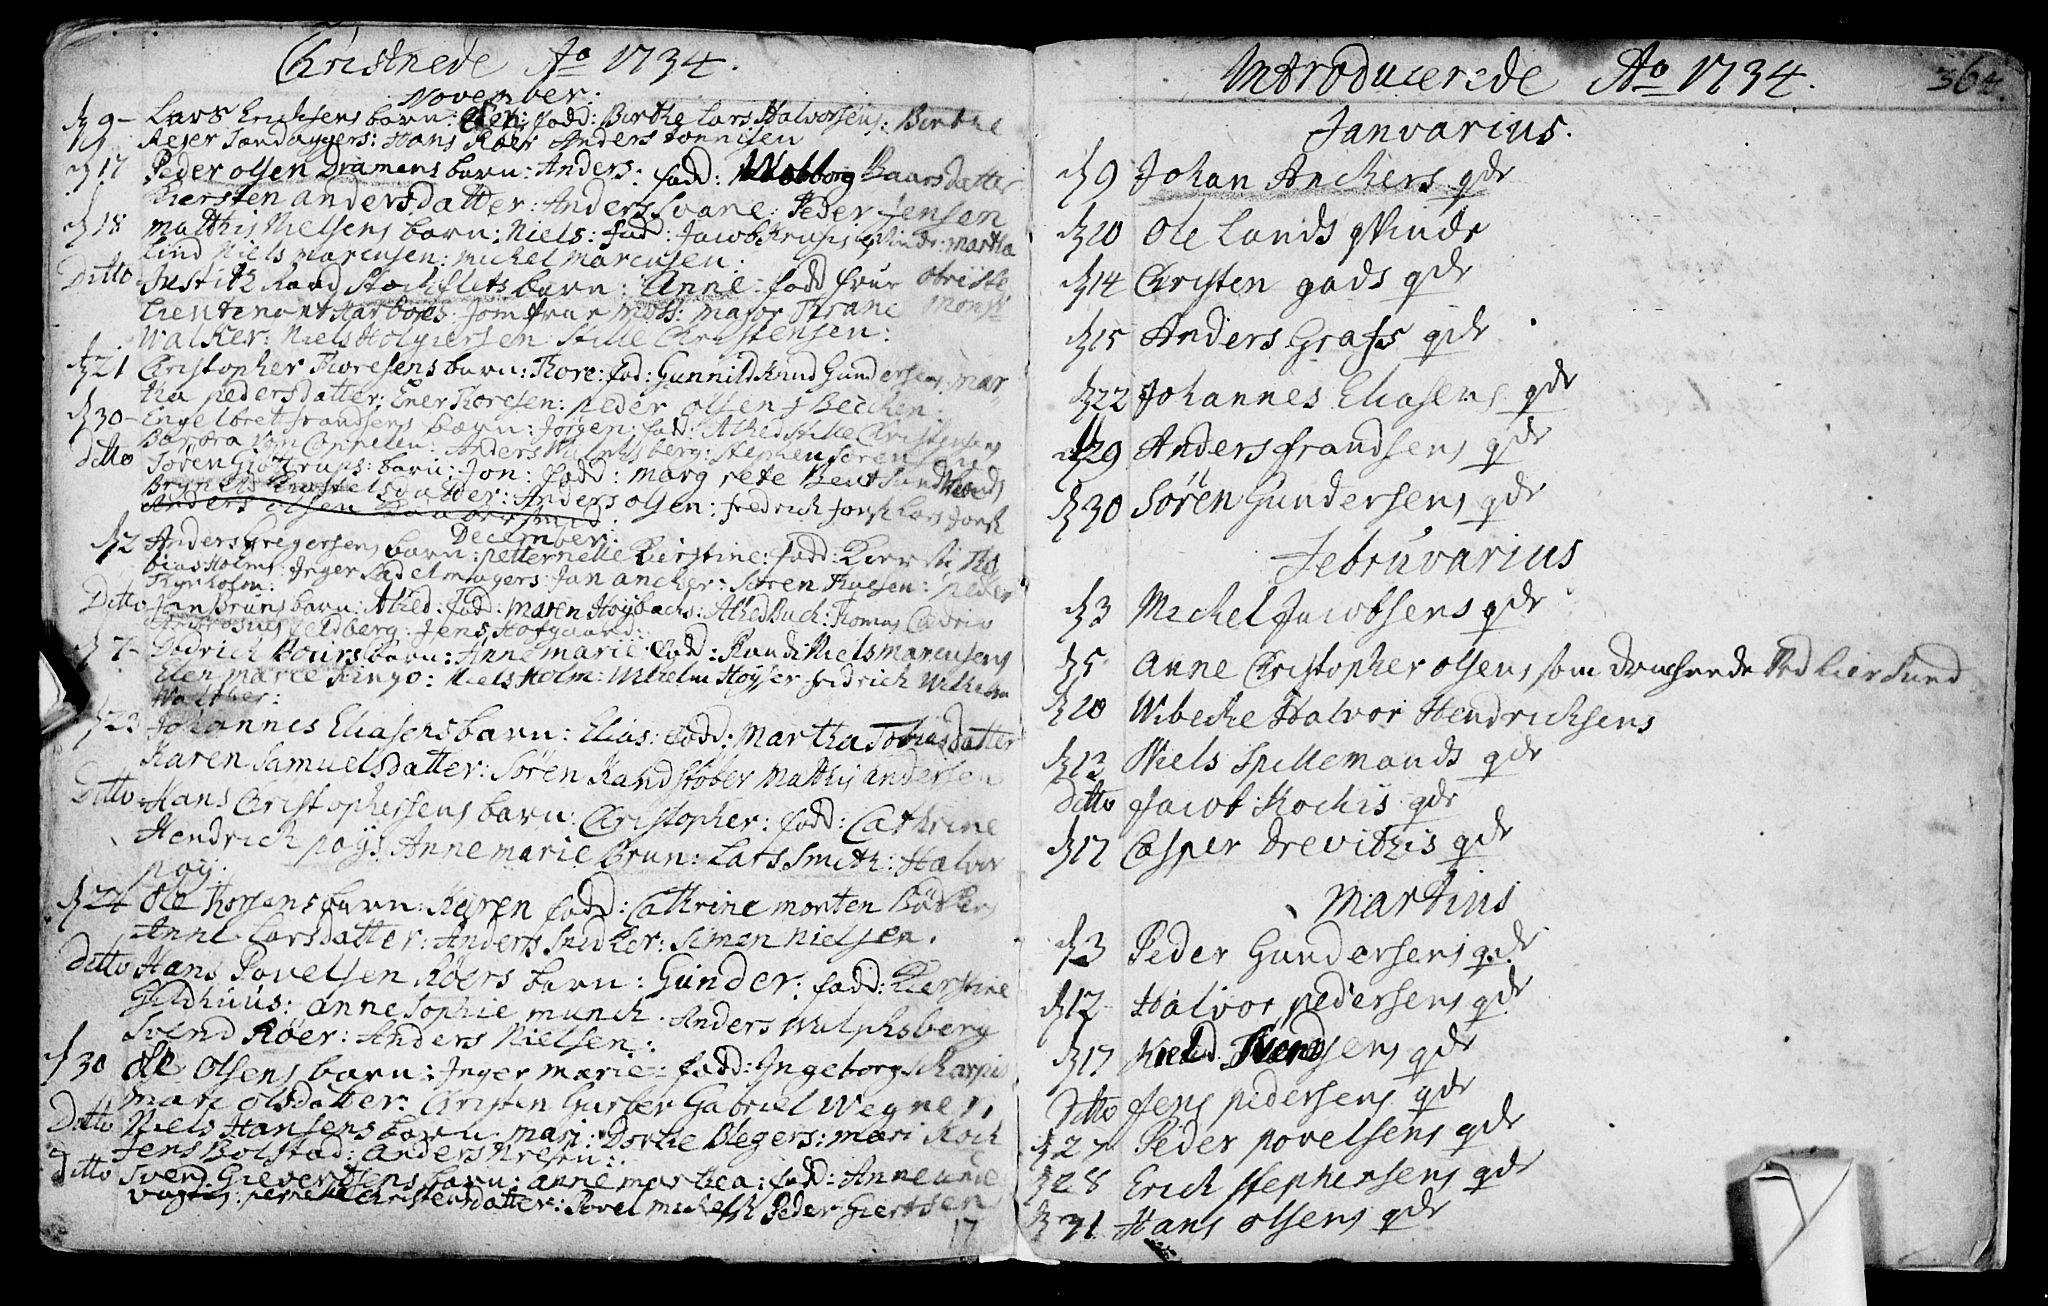 Christnede Ao 1734.
November:
d 9 - Lars Erichsens barn: fadd: Birthe Lars Halvorsens: Birthe
Reyer Sandaggers: Hans Røer Anders Tønnisen
d 17 Peder olsen Dramens barn: Anders: fadd: Baarsdatter
Kiersten andersdatter: Anders Svane: Peder Jensen
d 18 Matthis Nielsens barn: Niels: fad: Jacob Krusis qvinde: Martha
Lind Niels Marcusen: Michel Marcusen:
Ditto - Justitz Raad Stockflets barn: Anne: fadd frue Obriste
Lieutenant Harboes: Jomfrue Moss: Major Thrane Mons:
Walcker: Niels Holgiersen Stille Christensen:
d 21 Christopher Thoresens barn: Thore: fad: Gunnild Knud Gundersens: Mar-
tha pedersdatter: Ener Thoresen: peder olsen
d 30 - Engelbret frandsens barn: Jørgen: fad: Alhed Stille Christensens
Barbra von Cappelen: Anders Wulphsberg: Stephen Sørensen
ditto Søren Giøttrups: barn: Jon: fadd: margrete Bent Sundlands
datter: Anders olsen: fredrich Jorsk Lars Jorsk
Anders olsen
December:
d 2 Anders Gregersens barn: petternelle Kierstine: fadd: Tho
bias Holms: Inger Sadelmagers: Jan ancher: Søren Thuesen: peder
Thynholm:
Ditto Jan Bruns barn: Alhed: fadd: Maren Høybachs: Alhed Buch: Thomas
Ambrosius Feldberg: Jens Hofgaard:
d 7 - Didrich barn: Anne marie: fadd: Randi Niels Marcusens
Elen marie Kingo: Niels Holm: Wilhelm Høyer fridrich Wilhelm
Walther:
d 23 Johannes Eliasens barn: Elias: fadd: Martha Tobiesdatter
Karen Samuelsdatter: Søren Kandstøber Matthis andersen
Ditto - Hans Christophersens barn: Christopher: fadd: Cathrine
Hendrich pøys, Anne marie Brun: Lars Smith: Halvor
pøy:
d 24 Ole Thorsens barn: Karen fadd: Cathrine morten Bødkers
Anne Larsdatter: Anders Snidker: Simen Nielsen.
Ditto Hans Povelsen Røers barn: Gunder: fadd: Kierstine
Gildhuus: Anne Sophie Munch. Anders Wulphsberg
Svend Røer: Anders Nielsen:
d 30 Ole Olsens barn: Inger marie: fadd: Ingeborg
mari olsdatter: Christen Garber Gabriel Wegner.
Ditto Niels Hansens barn: mari: Dorthe Blegers: mari Koch
Jens Bolstad: Anders
Ditto Svend Gievertsens barn: anne marthea: fadd: Anne
Christensdatter: Povel michels Peder Giertsen
17
Introducerede Ao 1734. 364.
Januarius.
d 9 Johan Anchers qde
d 20 Ole Lands qvinde
d 14 Christen gads qde
d 15 Anders Grafs qde
d 22 Johannes Eliasens qde
d 29 Anders frandsens qde
d 30 Søren Gundersens qde
Februvarius
d 3 Michel Jacobsens qde
d 5 Anne Christopher olsens som druchnede Ved Liersund
d 20 Wibeche Halvor Hendrichsens
d 13 Niels Spillemands qde
Ditto Jacob Kochis qde
d 17 Casper Drevithis qde
Martius
d 3 Peder Gundersens qde
d 12 Halvor pedersens qde
d 17 Kield Svendsens qde
Ditto Jens pedersens qde
d 27 Peder povelsens qde
d 28 Erich Stephensens qde
d 31 Hans olsens qde